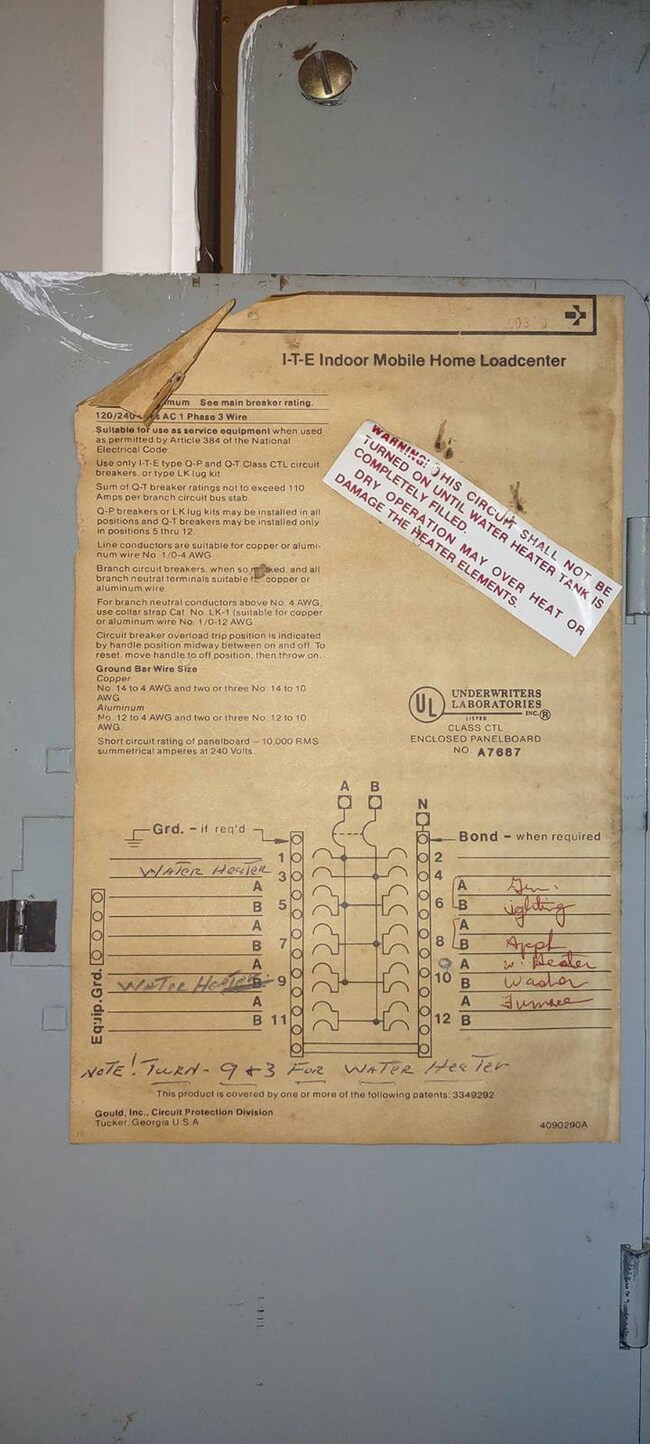 I-T-E Indoor Mobile Home Loadcenter
See main breaker rating.
AC 1 Phase 3 Wire
Suitable for use as service equipment when used
as permitted by Article 384 of the National
Electrical Code
Use only I-T-E type Q-P and Q-T Class CTL circuit
breakers, or type LK lug kit.
Sum of Q-T breaker ratings not to exceed 110
Amps per branch circuit bus stab.
Q-P breakers or LK lug kits may be installed in all
positions and Q-T breakers may be installed only
in positions 5 thru 12.
Line conductors are suitable for copper or alumi-
num wire No. 1/0-4 AWG.
Branch circuit breakers, when so and all
branch neutral terminals suitable copper or
aluminum wire
For branch neutral conductors above No. 4 AWG,
use collar strap Cat. No. LK-1 (suitable for copper
or aluminum wire No. 1/0-12 AWG
Circuit breaker overload trip position is indicated
by handle position midway between on and off. To
reset, move handle to off position, then throw on.
Ground Bar Wire Size
Copper
No. 14 to 4 AWG and two or three No. 14 to 10
AWG
Aluminum
No. 12 to 4 AWG and two or three No. 12 to 10
AWG.
Short circuit rating of panelboard – 10,000 RMS
summetrical amperes at 240 Volts.
WARNING: THIS CIRCUIT SHALL NOT BE
TURNED ON UNTIL WATER HEATER TANK IS
COMPLETELY FILLED.
DRY OPERATION MAY OVER HEAT OR
DAMAGE THE HEATER ELEMENTS.
UL
UNDERWRITERS
LABORATORIES
INC.®
LISTED
CLASS CTL
ENCLOSED PANELBOARD
NO. A7687
A B
N
Grd. – if req'd
Bond – when required
1 2
WATER HEATER 3 4
A A Gen.
5 6
B B Lighting
A A
7 8
B B Appl
A 9 A W. Heater
WATER HEATER B 9 10 B Washer
A A Furnace
B 11 12 B
Equip. Grd.
NOTE! TURN - 9 & 3 FOR WATER HeaTer
This product is covered by one or more of the following patents: 3349292
Gould, Inc., Circuit Protection Division
Tucker, Georgia U.S.A
4090290A